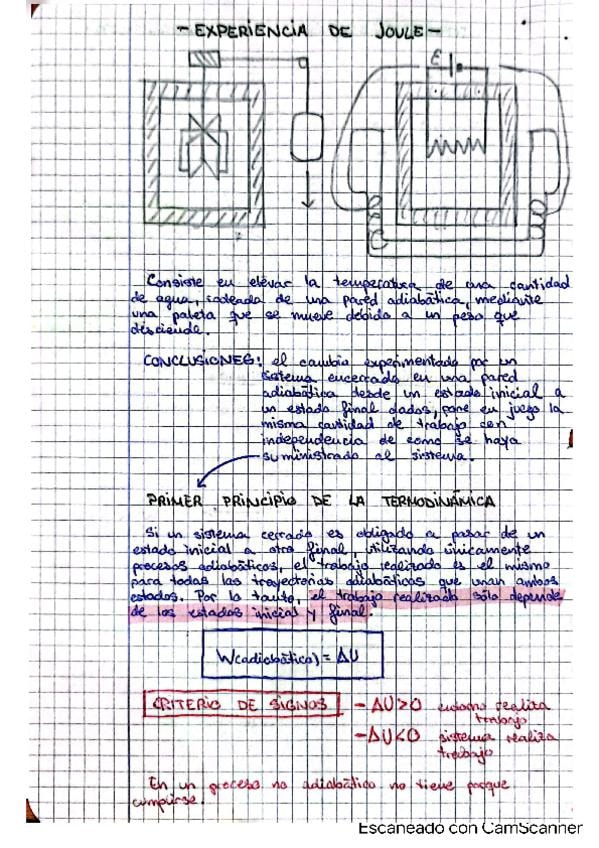 - EXPERIENCIA DE JOULE -
E
Consiste en elevar la temperatura de una cantidad
de agua, rodeada de una pared adiabática, mediante
una paleta que se mueve debido a un peso que
desciende.
CONCLUSIONES: el cambio experimentado por un
sistema encerrado en una pared
adiabática desde un estado inicial a
un estado final dados, pone en juego la
misma cantidad de trabajo con
independencia de como se haya
suministrado al sistema.
PRIMER PRINCIPIO DE LA TERMODINÁMICA
Si un sistema cerrado es obligado a pasar de un
estado inicial a otro final, utilizando únicamente
procesos adiabáticos, el trabajo realizado es el mismo
para todas las trayectorias adiabáticas que unan ambos
estados. Por lo tanto, el trabajo realizado sólo depende
de los estados inicial y final.
W(adiabático) = ΔU
CRITERIO DE SIGNOS - ΔU>0 entorno realiza
trabajo
- ΔU<0 sistema realiza
trabajo
En un proceso no adiabático no tiene porque
cumplirse.
Escaneado con CamScanner